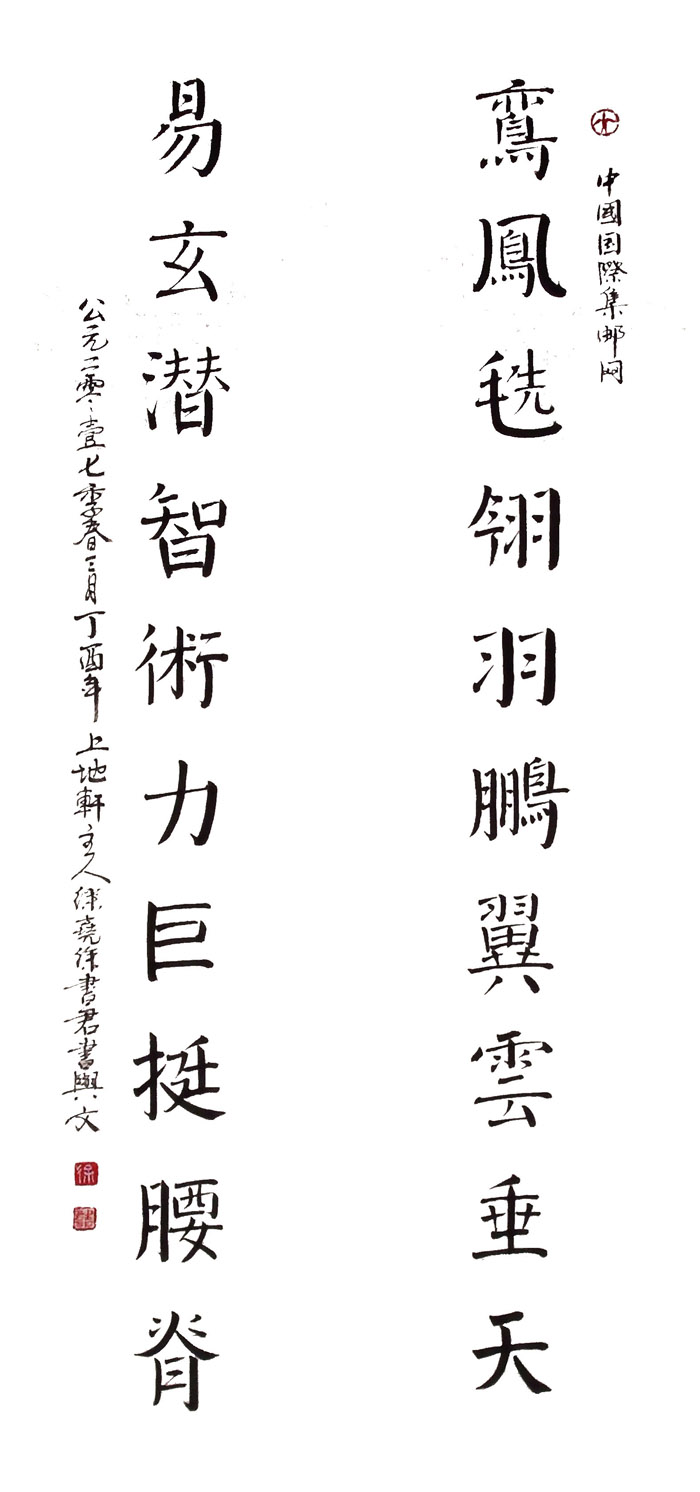 中國国際集邮网
鸞鳳毨翎羽鵬翼雲垂天
易玄潜智術力巨挺腰脊
公元二零壹七季春三月丁酉年上地軒主人徐堯徐書君書與文
徐